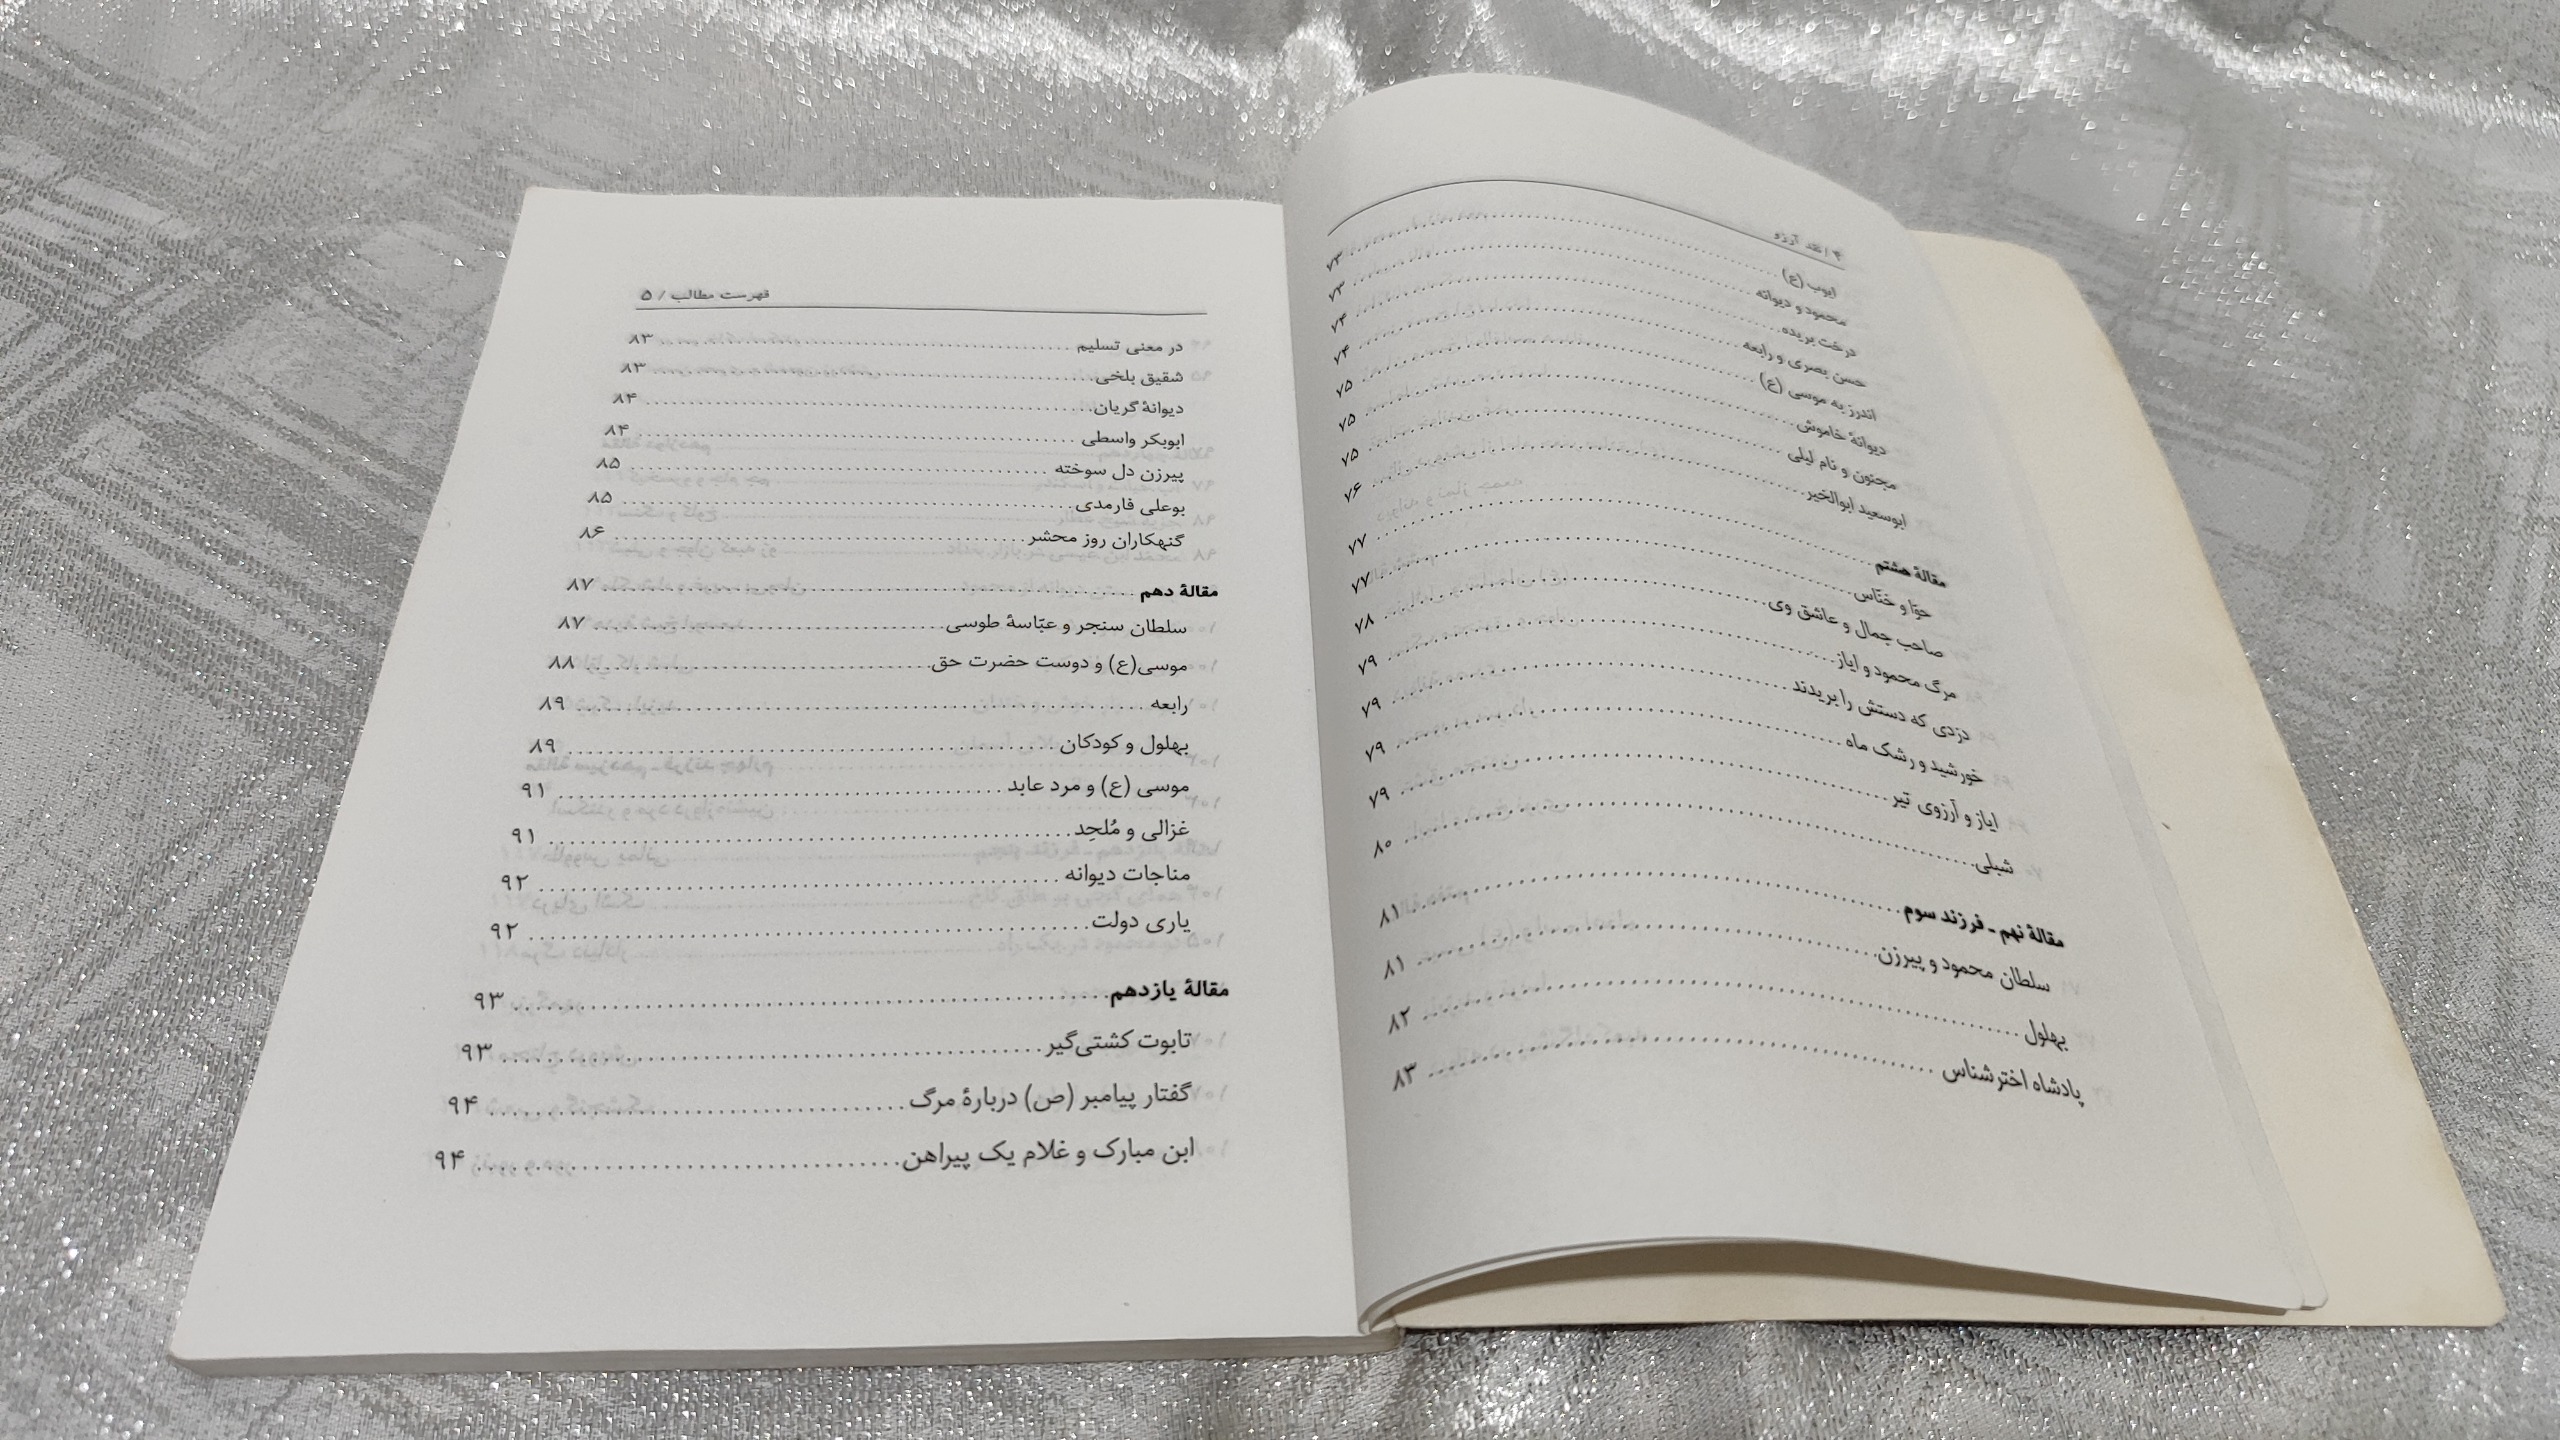 ۴ / نقد آرزو
ایوب (ع) ........ ۷۳
محمود و دیوانه ........ ۷۳
درخت بریده ........ ۷۴
حسن بصری و رابعه ........ ۷۴
اندرز به موسی (ع) ........ ۷۵
دیوانهٔ خاموش ........ ۷۵
مجنون و نام لیلی ........ ۷۵
ابوسعید ابوالخیر ........ ۷۶
مقالهٔ هشتم ........ ۷۷
حوّا و خنّاس ........ ۷۷
صاحب جمال و عاشق وی ........ ۷۸
مرگ محمود و ایاز ........ ۷۹
دزدی که دستش را بریدند ........ ۷۹
خورشید و رشک ماه ........ ۷۹
ایاز و آرزوی تیر ........ ۷۹
شبلی ........ ۸۰
مقالهٔ نهم ـ فرزند سوم ........ ۸۱
سلطان محمود و پیرزن ........ ۸۱
بهلول ........ ۸۲
پادشاه اخترشناس ........ ۸۳
فهرست مطالب / ۵
در معنی تسلیم ........ ۸۳
شقیق بلخی ........ ۸۳
دیوانهٔ گریان ........ ۸۴
ابوبکر واسطی ........ ۸۴
پیرزن دل سوخته ........ ۸۵
بوعلی فارمدی ........ ۸۵
گنهکاران روز محشر ........ ۸۶
مقالهٔ دهم ........ ۸۷
سلطان سنجر و عبّاسهٔ طوسی ........ ۸۷
موسی(ع) و دوست حضرت حق ........ ۸۸
رابعه ........ ۸۹
بهلول و کودکان ........ ۸۹
موسی (ع) و مرد عابد ........ ۹۱
غزالی و مُلحِد ........ ۹۱
مناجات دیوانه ........ ۹۲
یاری دولت ........ ۹۲
مقالهٔ یازدهم ........ ۹۳
تابوت کشتی‌گیر ........ ۹۳
گفتار پیامبر (ص) دربارهٔ مرگ ........ ۹۴
ابن مبارک و غلام یک پیراهن ........ ۹۴